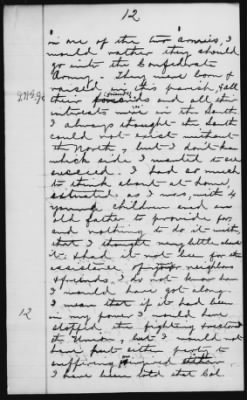 12
in one of the two armies, I
would rather they should
go into the Confederate
Army. They were born &
raised in this parish & all
their friends and all their
interests were in the South.
I always thought the South
could not exist without
the North, but I don't know
which side I wanted to see
succeed. I had so much
to think about at home
situated as I was, with 6
young children and an
old father to provide for,
and nothing to do it with,
that I thought very little about
it. Had it not been for the
assistance of neighbors
& friends, I do not know how
I would have got along.
I mean that if it had been
in my power I would have
stopped the fighting
the Union, but I would not
have put either party to
suffering
I have been told that Col.
12